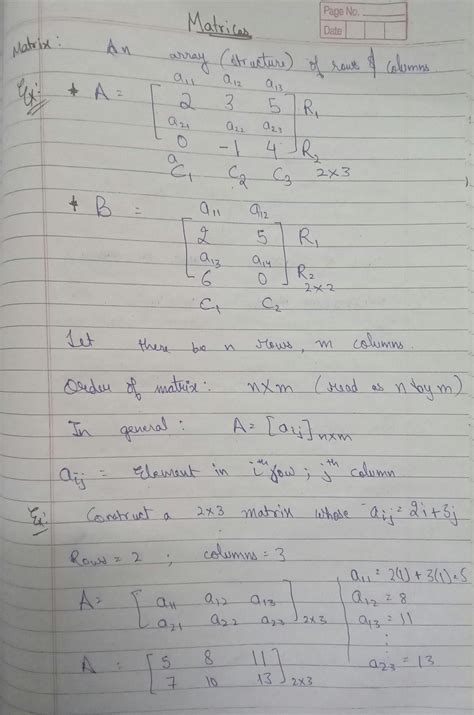 Page No.
Date
Matrices
Matrix: An array (structure) of rows & columns
a11 a12 a13
Ex: * A = [ 2 3 5 ] R1
a21 a22 a23
0 -1 4 R2
a
C1 C2 C3 2x3
* B = a11 a12
[ 2 5 ] R1
a13 a14
6 0 R2
2x2
C1 C2
Let there be n rows, m columns.
Order of matrix: nxm (read as n by m)
In general: A = [aij] nxm
aij = Element in ith row; jth column
Ex: Construct a 2x3 matrix whose aij = 2i+3j
Rows = 2 ; columns = 3
a11 = 2(1) + 3(1) = 5
A = [ a11 a12 a13
a21 a22 a23 ] 2x3
a12 = 8
a13 = 11
⋮
a23 = 13
A = [ 5 8 11
7 10 13 ] 2x3